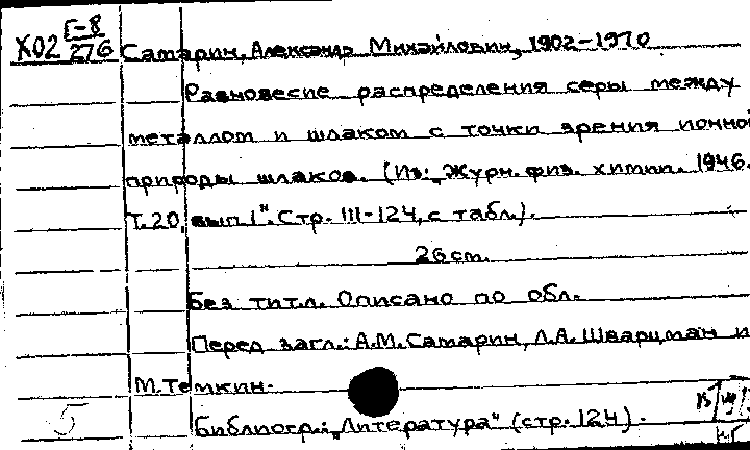 Х02 Г-8/276 Самарин, Александр Михайлович, 1902-1970
Равновесие распределения серы между
металлом и шлаком с точки зрения ионной
природы шлаков. (Из: „Журн. физ. химии. 1946.
Т.20, вып.1". Стр. 111-124, с табл.).
26 см.
Без тит.л. Описано по обл.
Перед загл.: А.М. Самарин, Л.А. Шварцман и
М. Темкин.
5 Библиогр.: „Литература" (стр. 124).